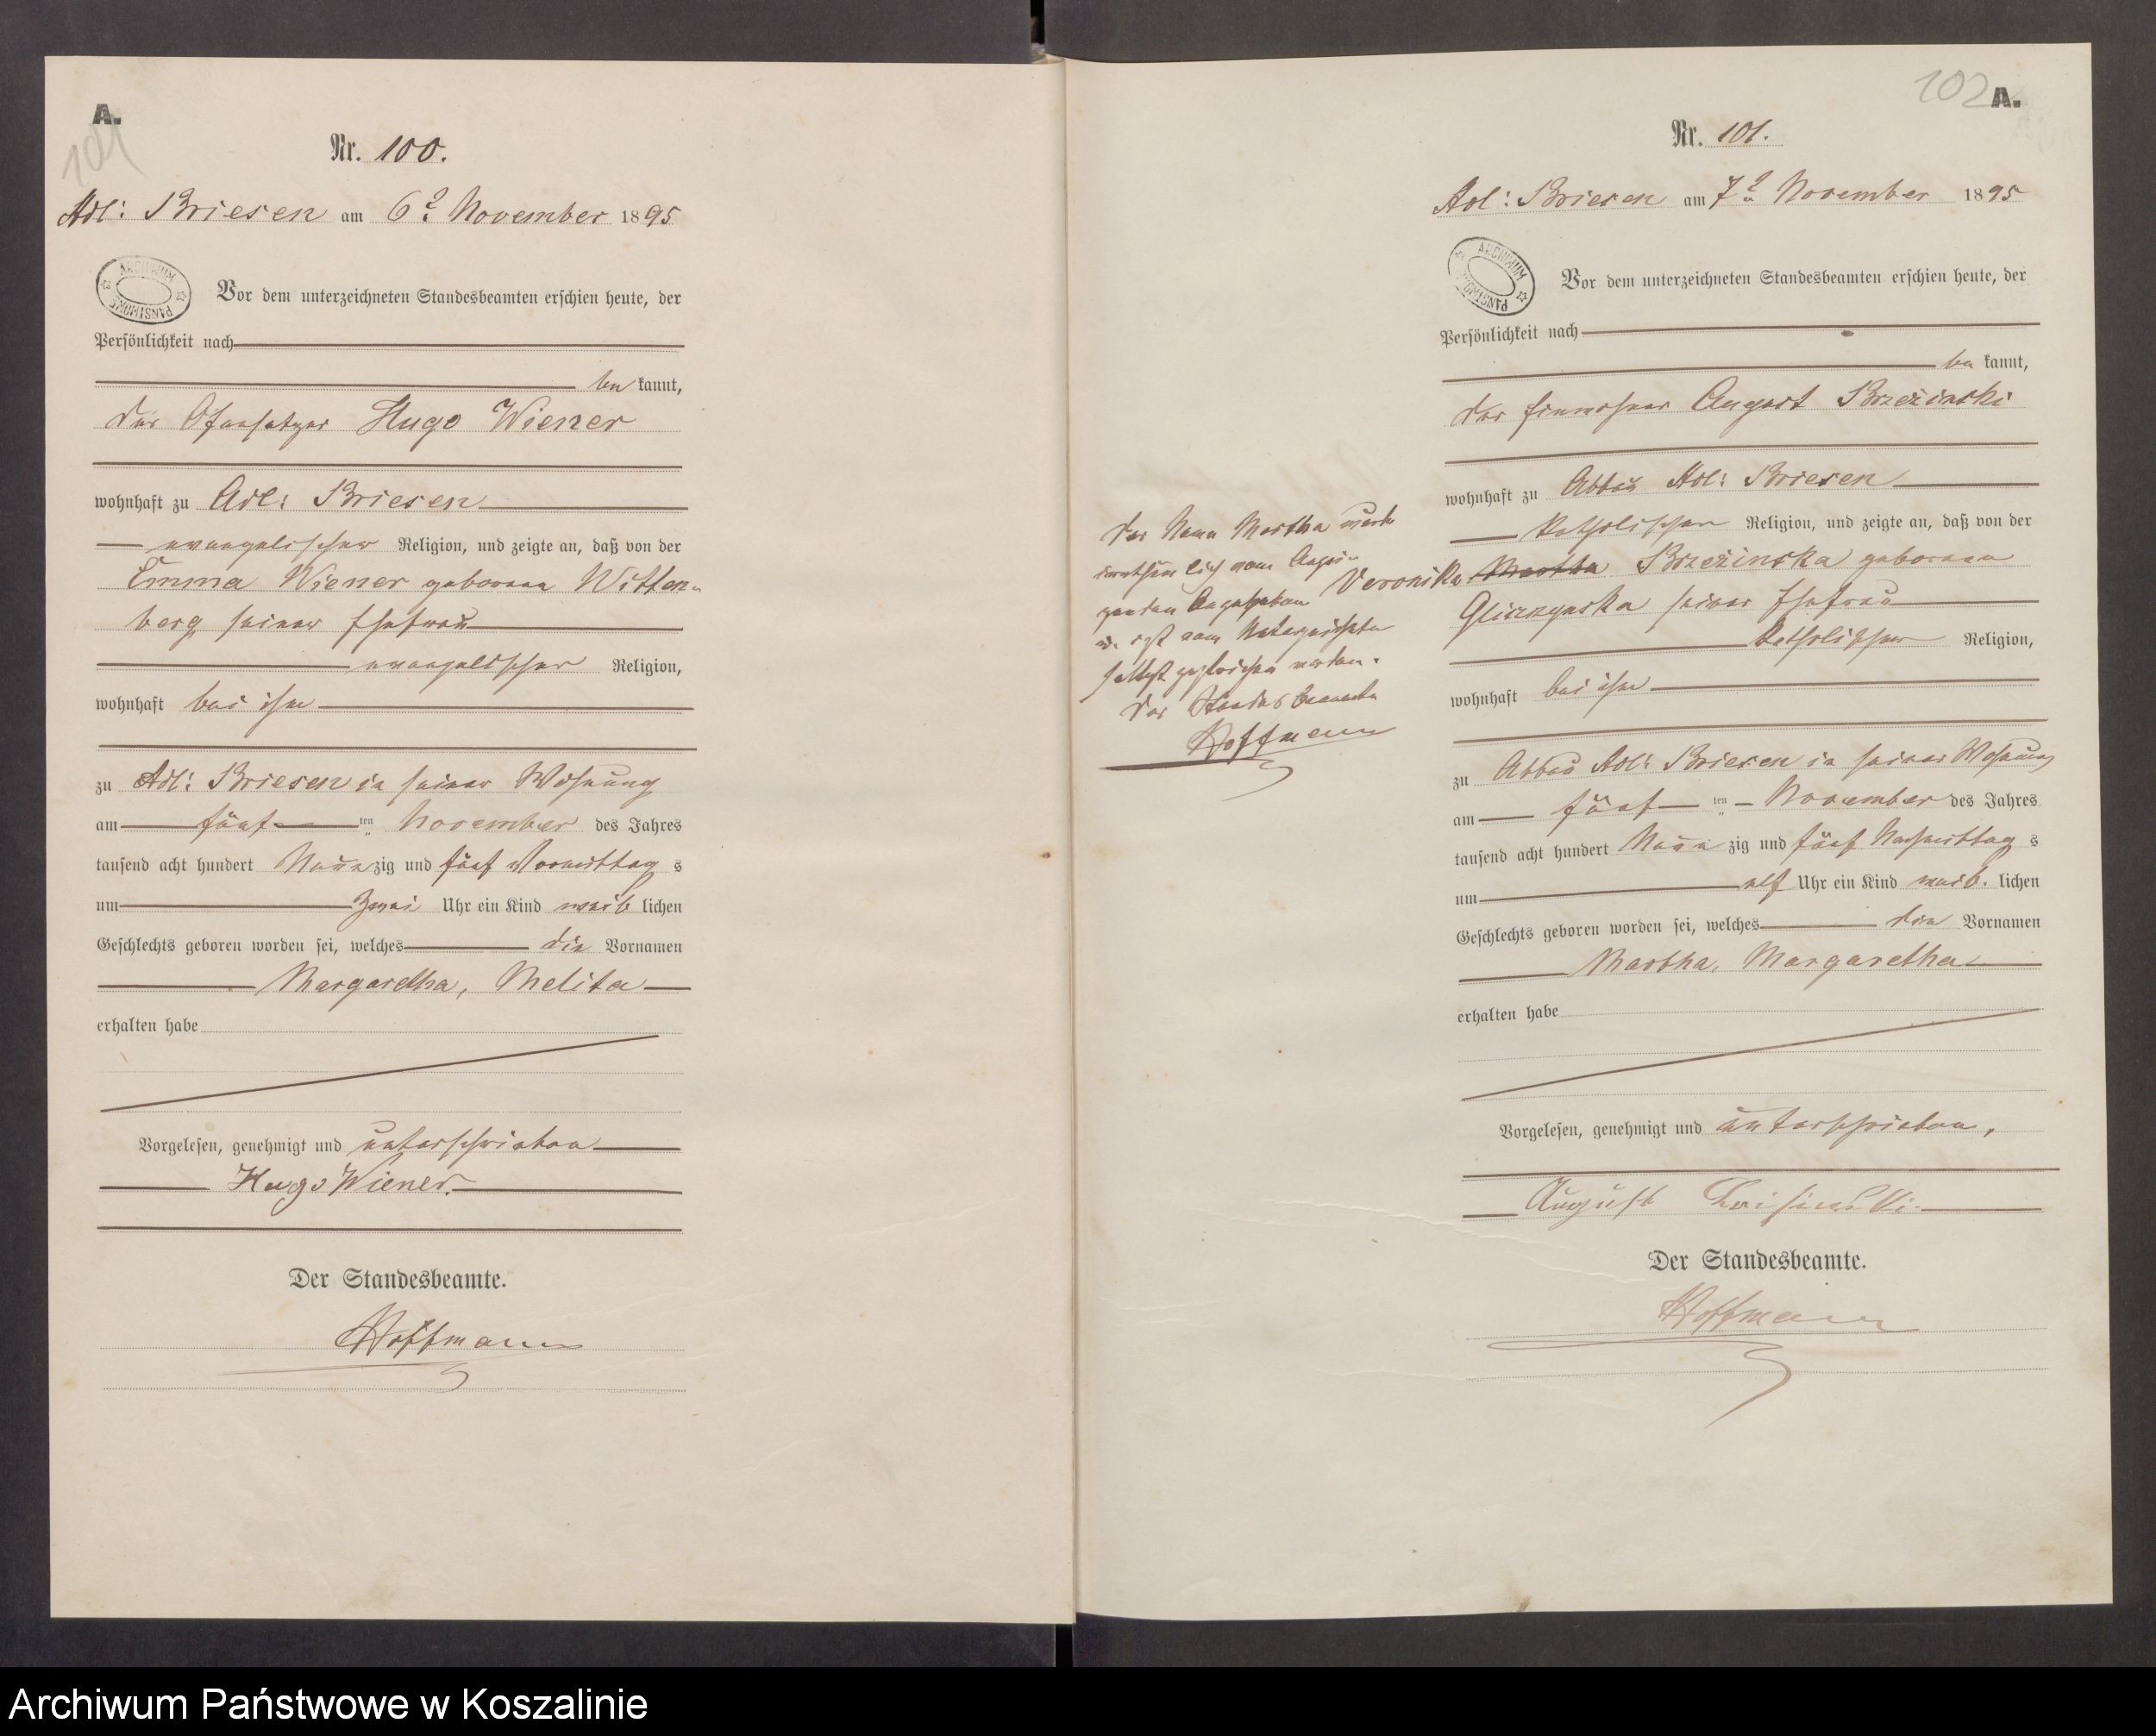 A.
101
Nr. 100.
Adl: Briesen am 6. November 1895
ARCHIWUM PAŃSTWOWE
Vor dem unterzeichneten Standesbeamten erschien heute, der
Persönlichkeit nach
be kannt,
der Ofensetzer Hugo Wiener
wohnhaft zu Adl: Briesen
evangelischer Religion, und zeigte an, daß von der
Emma Wiener geborene Witten-
berg seiner Ehefrau
evangelischer Religion,
wohnhaft bei ihm
zu Adl: Briesen in seiner Wohnung
am fünf ten November des Jahres
tausend acht hundert Neun zig und fünf Vormittag s
um Zwei Uhr ein Kind weib lichen
Geschlechts geboren worden sei, welches die Vornamen
Margaretha, Melita
erhalten habe
Vorgelesen, genehmigt und unterschrieben
Hugo Wiener.
Der Standesbeamte.
Hoffmann
102 A.
Nr. 101.
Adl: Briesen am 7. November 1895
ARCHIWUM PAŃSTWOWE
Vor dem unterzeichneten Standesbeamten erschien heute, der
Persönlichkeit nach
be kannt,
der Einwohner August Brzezinski
wohnhaft zu Abbau Adl: Briesen
Katholischer Religion, und zeigte an, daß von der
Veronika Martha Brzezinska geborene
seiner Ehefrau
Katholischer Religion,
wohnhaft bei ihm
zu Abbau Adl: Briesen in seiner Wohnung
am fünf ten November des Jahres
tausend acht hundert Neun zig und fünf Nachmittag s
um elf Uhr ein Kind weib. lichen
Geschlechts geboren worden sei, welches die Vornamen
Martha, Margaretha
erhalten habe
Vorgelesen, genehmigt und unterschrieben,
August
Der Standesbeamte.
Hoffmann
Der Name Martha wurde
irrthümlich vom Anzei-
genden angegeben
u. ist vom
selbst gestrichen worden.
Der Standesbeamte
Hoffmann
Archiwum Państwowe w Koszalinie